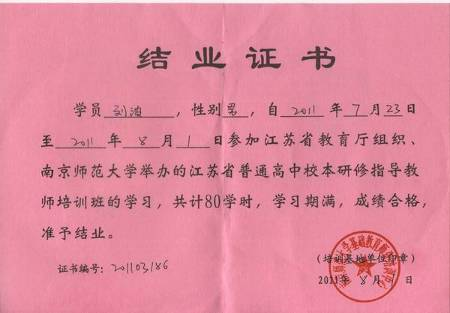 结业证书
学员刘波，性别男，自2011年7月23日
至2011年8月1日参加江苏省教育厅组织、
南京师范大学举办的江苏省普通高中校本研修指导教
师培训班的学习，共计80学时，学习期满，成绩合格，
准予结业。
(培训基地单位印章)
证书编号：201103186
2011年8月1日